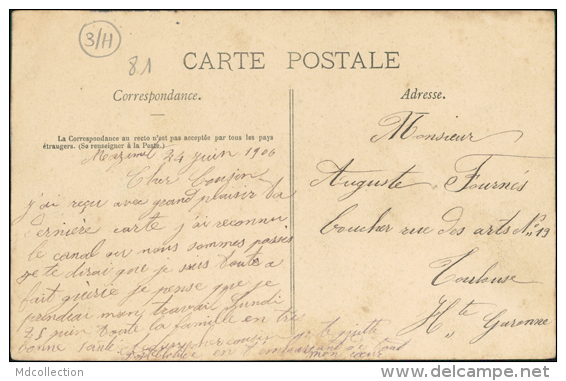 3/H
81
CARTE POSTALE
Correspondance.
Adresse.
La Correspondance au recto n'est pas acceptée par tous les pays
étrangers. (Se renseigner à la Poste.)
Mazamet 24 juin 1906
Cher Cousin
j'ai reçu avec grand plaisir ta
dernière carte j'ai reconnu
le canal ou nous sommes passés
je te dirai que je suis toute a
fait guérie je pense que je
prendrai mon travail lundi
25 juin toute la famille en très
bonne santé
cousine
je te quitte
en t'embrassant de tout
mon cœur
Monsieur
Auguste Fournés
boucher rue des arts N° 19
Toulouse
Hte Garonne
MdCollection
www.delcampe.net